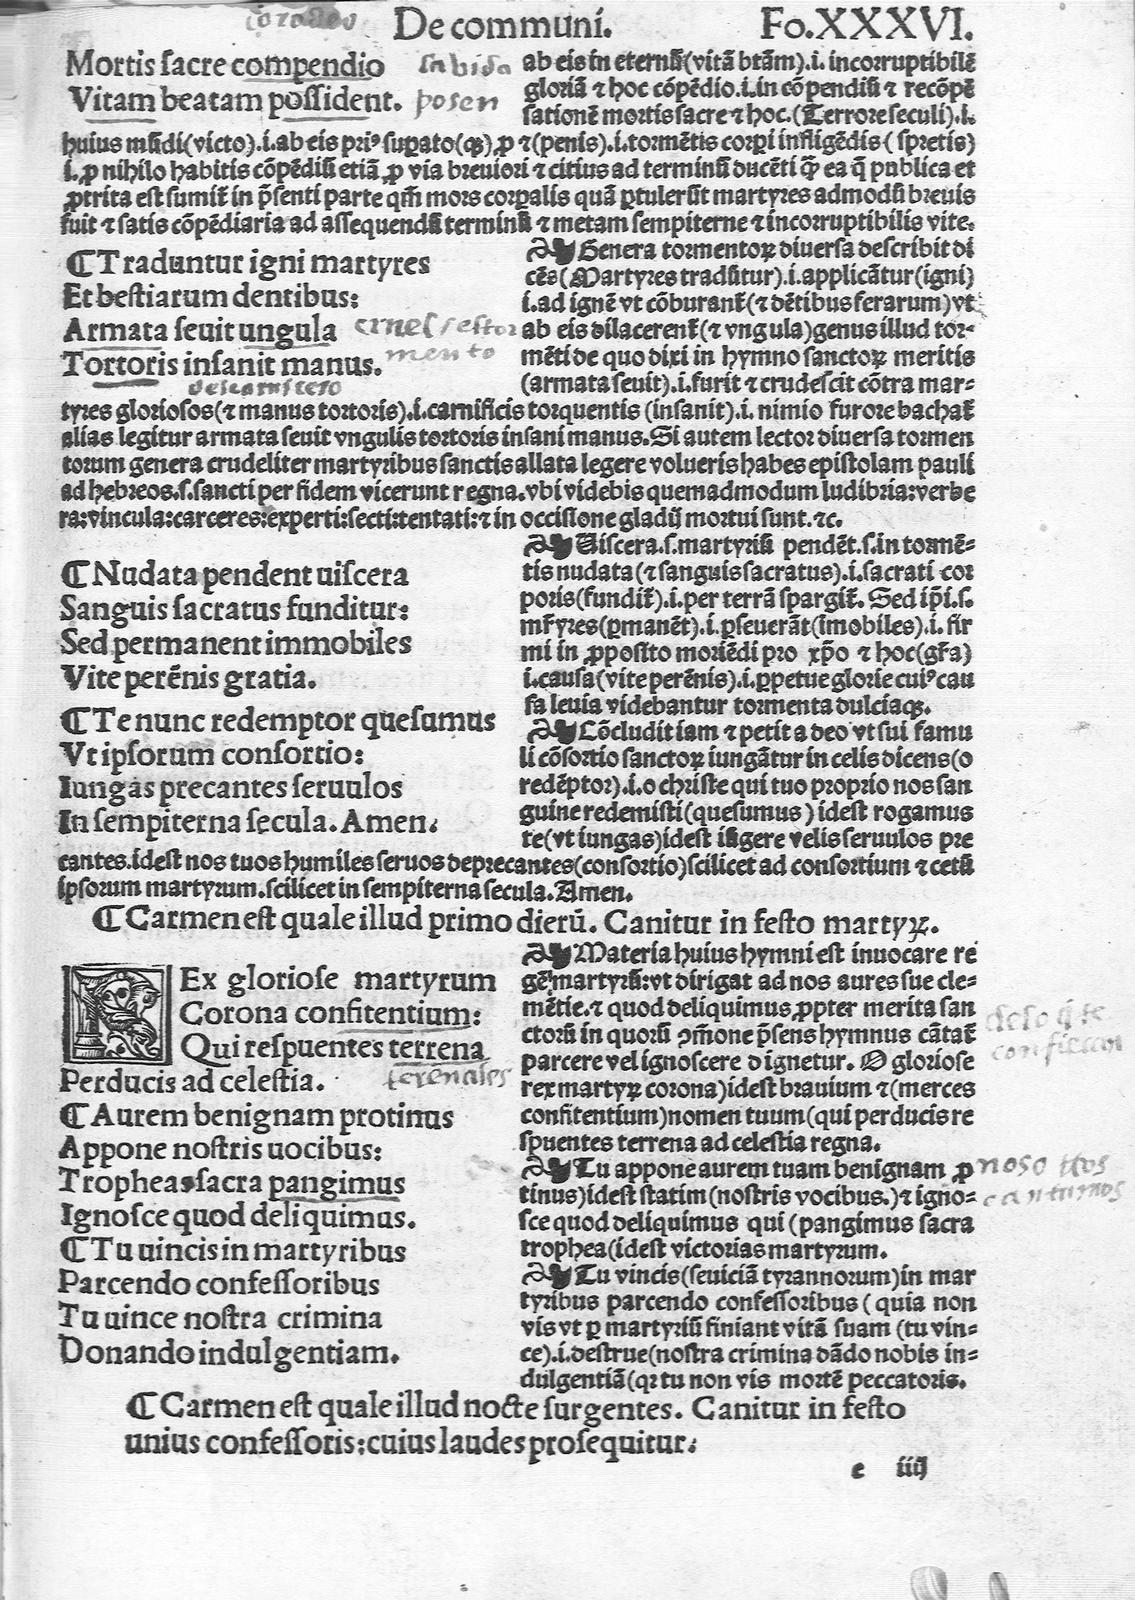 De communi. Fo.XXXVI.
Mortis sacre compendio
Vitam beatam possident. posen
ab eis in eternũ(vitã btãm).i. incorruptibilẽ
gloriã ⁊ hoc cõpẽdio.i.in cõpendiũ ⁊ recõpẽ
sationẽ mortis sacre ⁊ hoc.(Terrore seculi).i.
huius mũdi(victo).i.ab eis priꝰ supato(qꝫ)ꝓ ⁊(penis).i.tormẽtis corpi infligẽdis(spretis)
i.ꝓ nihilo habitis cõpẽdiũ etiã ꝓ via breuiori ⁊ citius ad terminũ ducẽti q̃ ea q̃ publica et
ꝓtrita est sumit̃ in p̃senti parte qm̃ mors corꝑalis quã ꝑtulerũt martyres admodũ breuis
fuit ⁊ satis cõpẽdiaria ad assequendũ terminũ ⁊ metam sempiterne ⁊ incorruptibilis vite.
¶ Traduntur igni martyres
Et bestiarum dentibus:
Armata seuit ungula
Tortoris insanit manus.
Genera tormentoꝝ diuersa describit di
cẽs(Martyres tradũtur).i.applicãtur(igni)
i.ad ignẽ vt cõburant̃(⁊ dẽtibus ferarum)vt
ab eis dilacerent̃(⁊ vngula)genus illud tor-
mẽti de quo dixi in hymno sanctoꝝ meritis
(armata seuit).i.furit ⁊ crudescit cõtra mar-
tyres gloriosos(⁊ manus tortoris).i.carnificis torquentis (insanit).i. nimio furore bachat̃
alias legitur armata seuit vngulis tortoris insani manus.Si autem lector diuersa tormen
torum genera crudeliter martyribus sanctis allata legere volueris habes epistolam pauli
ad hebreos.s.sancti per fidem vicerunt regna.vbi videbis quemadmodum ludibria:verbe
ra:vincula:carceres:experti:secti:tentati:⁊ in occisione gladij mortui sunt.⁊c.
¶ Nudata pendent uiscera
Sanguis sacratus funditur:
Sed permanent immobiles
Vite perẽnis gratia.
Uiscera.s.martyrũ pendẽt.s.in tormẽ-
tis nudata(⁊ sanguis sacratus).i.sacrati cor
poris(fundit̃).i.per terrã spargit̃. Sed ip̃i.s.
mr̃yres(ꝑmanẽt).i.ꝑseuerãt(imobiles).i. fir
mi in ꝓposito moriẽdi pro xp̃o ⁊ hoc(gr̃a)
i.causa(vite perẽnis).i.ꝑpetue glorie cuiꝰ cau
sa leuia videbantur tormenta dulciaqꝫ.
¶ Te nunc redemptor quesumus
Vt ipsorum consortio:
Iungas precantes seruulos
In sempiterna secula. Amen.
Cõcludit iam ⁊ petit a deo vt sui famu
li cõsortio sanctoꝝ iungãtur in celis dicens(o
redẽptor).i.o christe qui tuo proprio nos san
guine redemisti(quesumus)idest rogamus
te(vt iungas)idest iũgere velis seruulos pre
cantes.idest nos tuos humiles seruos deprecantes(consortio)scilicet ad consortium ⁊ cetũ
ipsorum martyrum.scilicet in sempiterna secula.Amen.
¶ Carmen est quale illud primo dierũ. Canitur in festo martyꝝ.
REx gloriose martyrum
Corona confitentium:
Qui respuentes terrena
Perducis ad celestia. terenales
Materia huius hymni est inuocare re
gẽ martyrũ:vt dirigat ad nos aures sue cle-
mẽtie.⁊ quod deliquimus ꝓpter merita san
ctorũ in quorũ ꝯm̃one p̃sens hymnus cãtat̃
parcere vel ignoscere dignetur. O gloriose
rex martyꝝ corona)idest brauium ⁊(merces
confitentium)nomen tuum(qui perducis re
spuentes terrena ad celestia regna.
¶ Aurem benignam protinus
Appone nostris uocibus:
Trophea sacra pangimus
Ignosce quod deliquimus.
Tu appone aurem tuam benignam ꝓ
tinus)idest statim(nostris vocibus.)⁊ igno-
sce quod deliquimus qui (pangimus sacra
trophea(idest victorias martyrum.
¶ Tu uincis in martyribus
Parcendo confessoribus
Tu uince nostra crimina
Donando indulgentiam.
Tu vincis(seuiciã tyrannorum)in mar
tyribus parcendo confessoribus(quia non
vis vt ꝑ martyriũ finiant vitã suam (tu vin-
ce).i.destrue(nostra crimina dãdo nobis in-
dulgentiã(qꝛ tu non vis mortẽ peccatoris.
¶ Carmen est quale illud nocte surgentes. Canitur in festo
unius confessoris:cuius laudes prosequitur:
e iiij